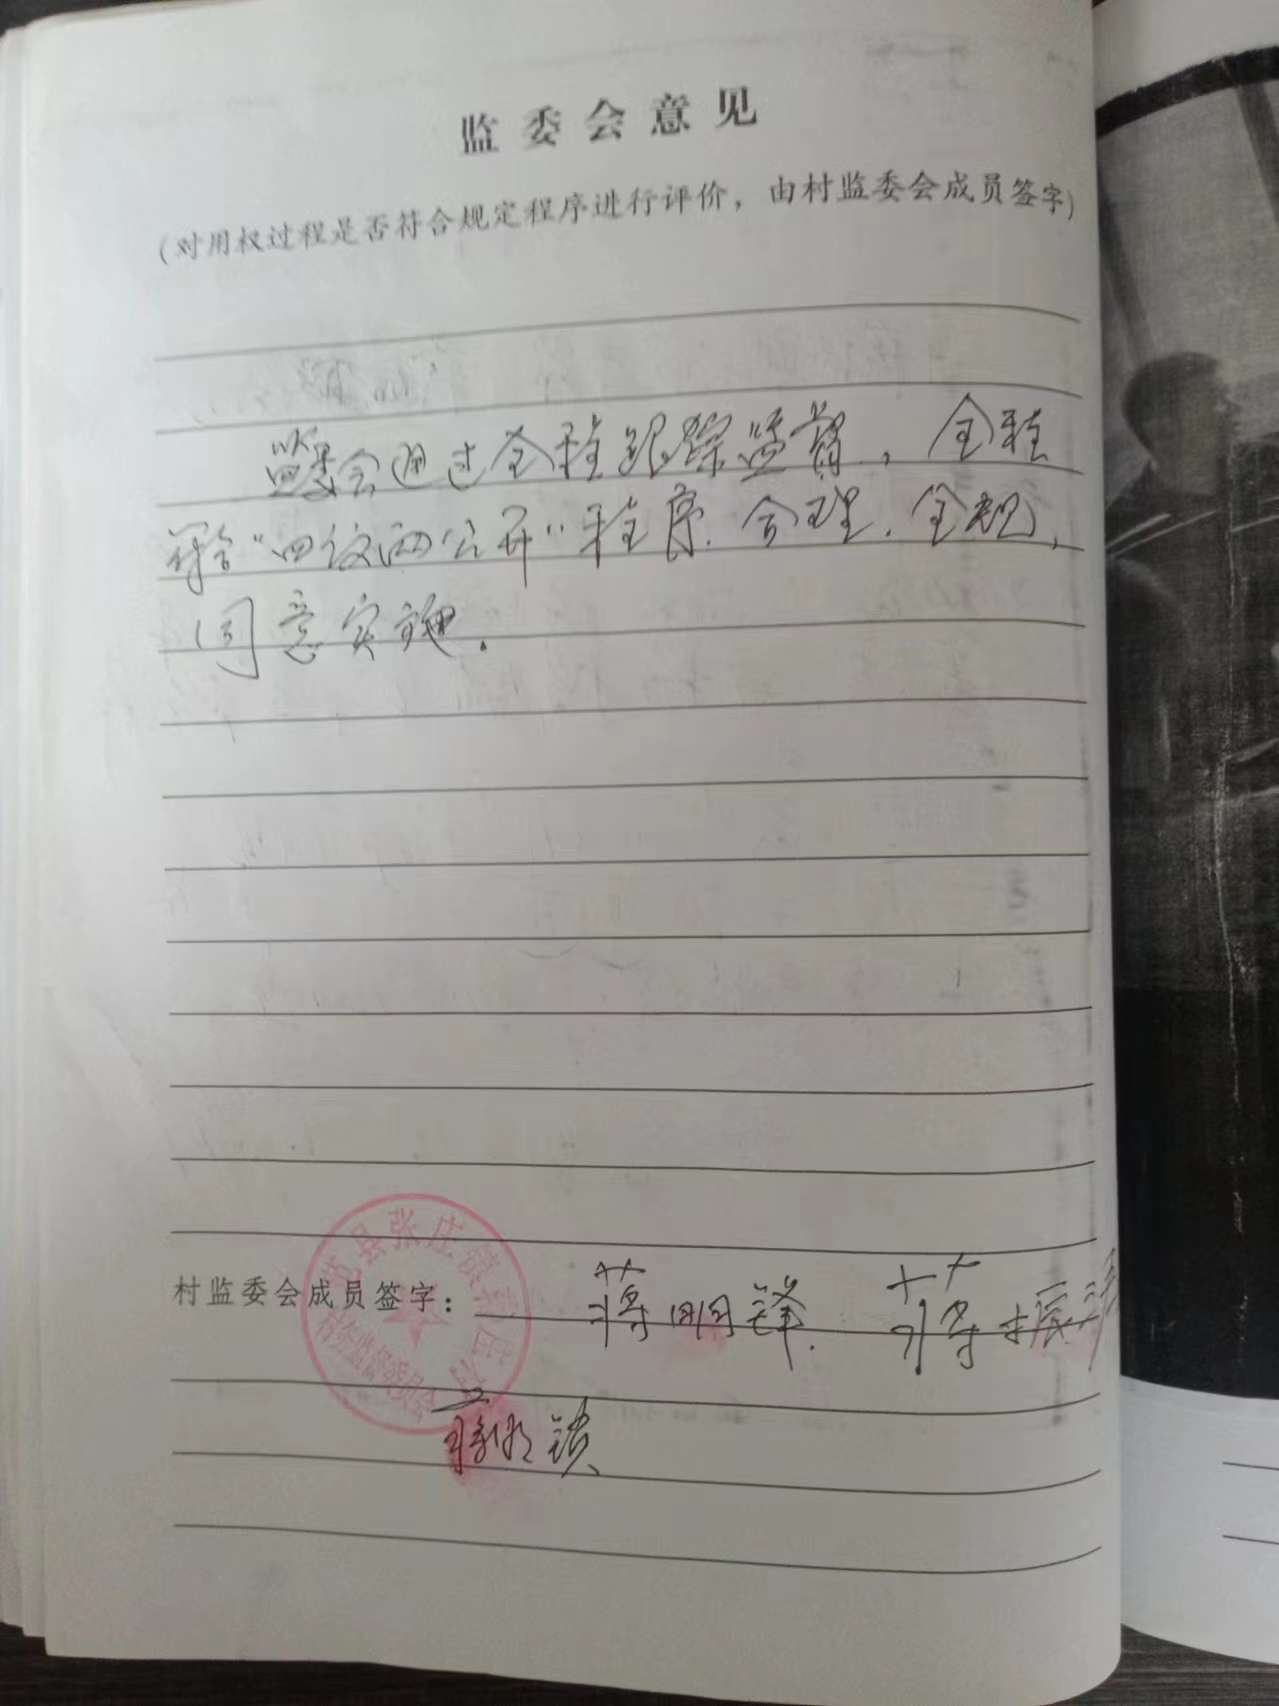 监委会意见
(对用权过程是否符合规定程序进行评价，由村监委会成员签字)
监委会通过全程跟踪监督，全程
符合“四议两公开”程序.合理.合规，
同意实施.
范县张庄镇
村务监督委员会
村监委会成员签字：蒋明锋.蒋振
蒋